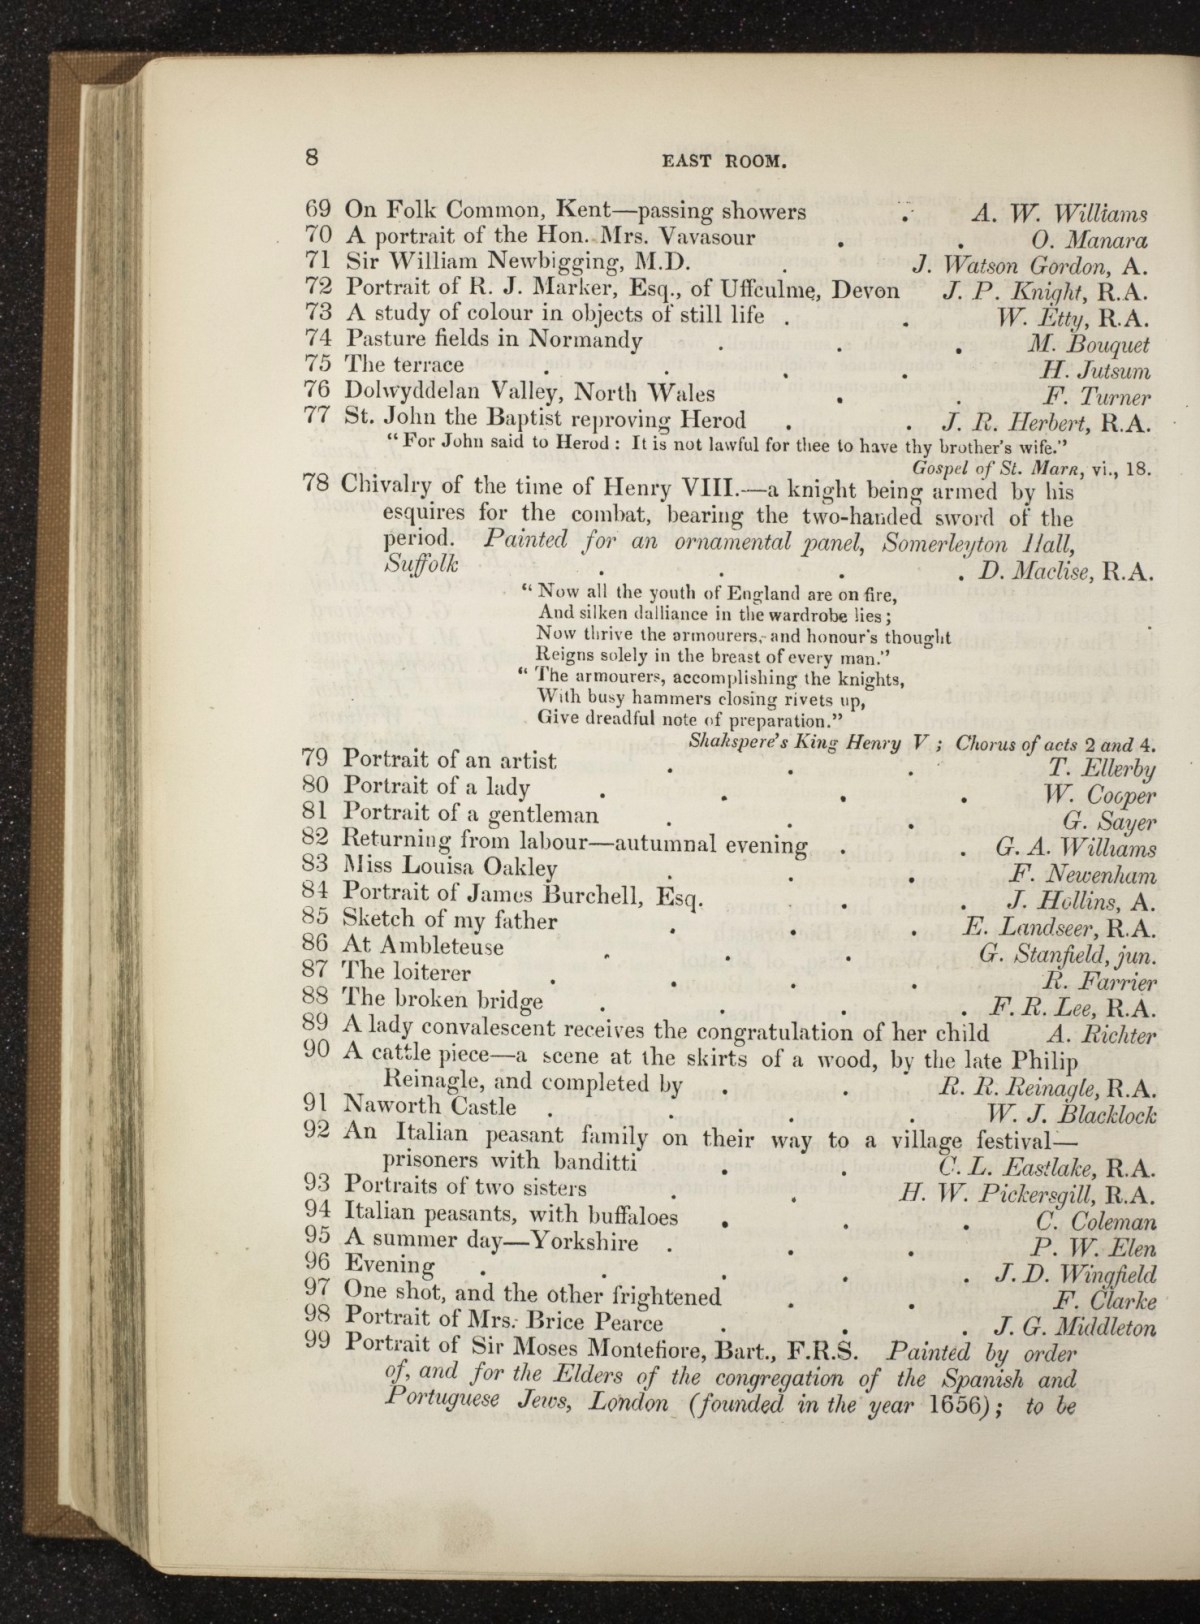 8 EAST ROOM.
69 On Folk Common, Kent—passing showers . A. W. Williams
70 A portrait of the Hon. Mrs. Vavasour . . O. Manara
71 Sir William Newbigging, M.D. . J. Watson Gordon, A.
72 Portrait of R. J. Marker, Esq., of Uffculme, Devon J. P. Knight, R.A.
73 A study of colour in objects of still life . . W. Etty, R.A.
74 Pasture fields in Normandy . . . M. Bouquet
75 The terrace . . . . H. Jutsum
76 Dolwyddelan Valley, North Wales . . F. Turner
77 St. John the Baptist reproving Herod . . J. R. Herbert, R.A.
“For John said to Herod : It is not lawful for thee to have thy brother's wife.”
Gospel of St. Mark, vi., 18.
78 Chivalry of the time of Henry VIII.—a knight being armed by his
esquires for the combat, bearing the two-handed sword of the
period. Painted for an ornamental panel, Somerleyton Hall,
Suffolk . . . . D. Maclise, R.A.
“Now all the youth of England are on fire,
And silken dalliance in the wardrobe lies;
Now thrive the armourers, and honour's thought
Reigns solely in the breast of every man.”
“The armourers, accomplishing the knights,
With busy hammers closing rivets up,
Give dreadful note of preparation.”
Shakspere's King Henry V ; Chorus of acts 2 and 4.
79 Portrait of an artist . . . T. Ellerby
80 Portrait of a lady . . . . W. Cooper
81 Portrait of a gentleman . . . G. Sayer
82 Returning from labour—autumnal evening . . G. A. Williams
83 Miss Louisa Oakley . . . F. Newenham
84 Portrait of James Burchell, Esq. . . J. Hollins, A.
85 Sketch of my father . . . E. Landseer, R.A.
86 At Ambleteuse . . . G. Stanfield, jun.
87 The loiterer . . . . R. Farrier
88 The broken bridge . . . . F. R. Lee, R.A.
89 A lady convalescent receives the congratulation of her child A. Richter
90 A cattle piece—a scene at the skirts of a wood, by the late Philip
Reinagle, and completed by . . R. R. Reinagle, R.A.
91 Naworth Castle . . . . W. J. Blacklock
92 An Italian peasant family on their way to a village festival—
prisoners with banditti . . C. L. Eastlake, R.A.
93 Portraits of two sisters . . H. W. Pickersgill, R.A.
94 Italian peasants, with buffaloes . . . C. Coleman
95 A summer day—Yorkshire . . . P. W. Elen
96 Evening . . . . . J. D. Wingfield
97 One shot, and the other frightened . . F. Clarke
98 Portrait of Mrs. Brice Pearce . . . J. G. Middleton
99 Portrait of Sir Moses Montefiore, Bart., F.R.S. Painted by order
of, and for the Elders of the congregation of the Spanish and
Portuguese Jews, London (founded in the year 1656); to be